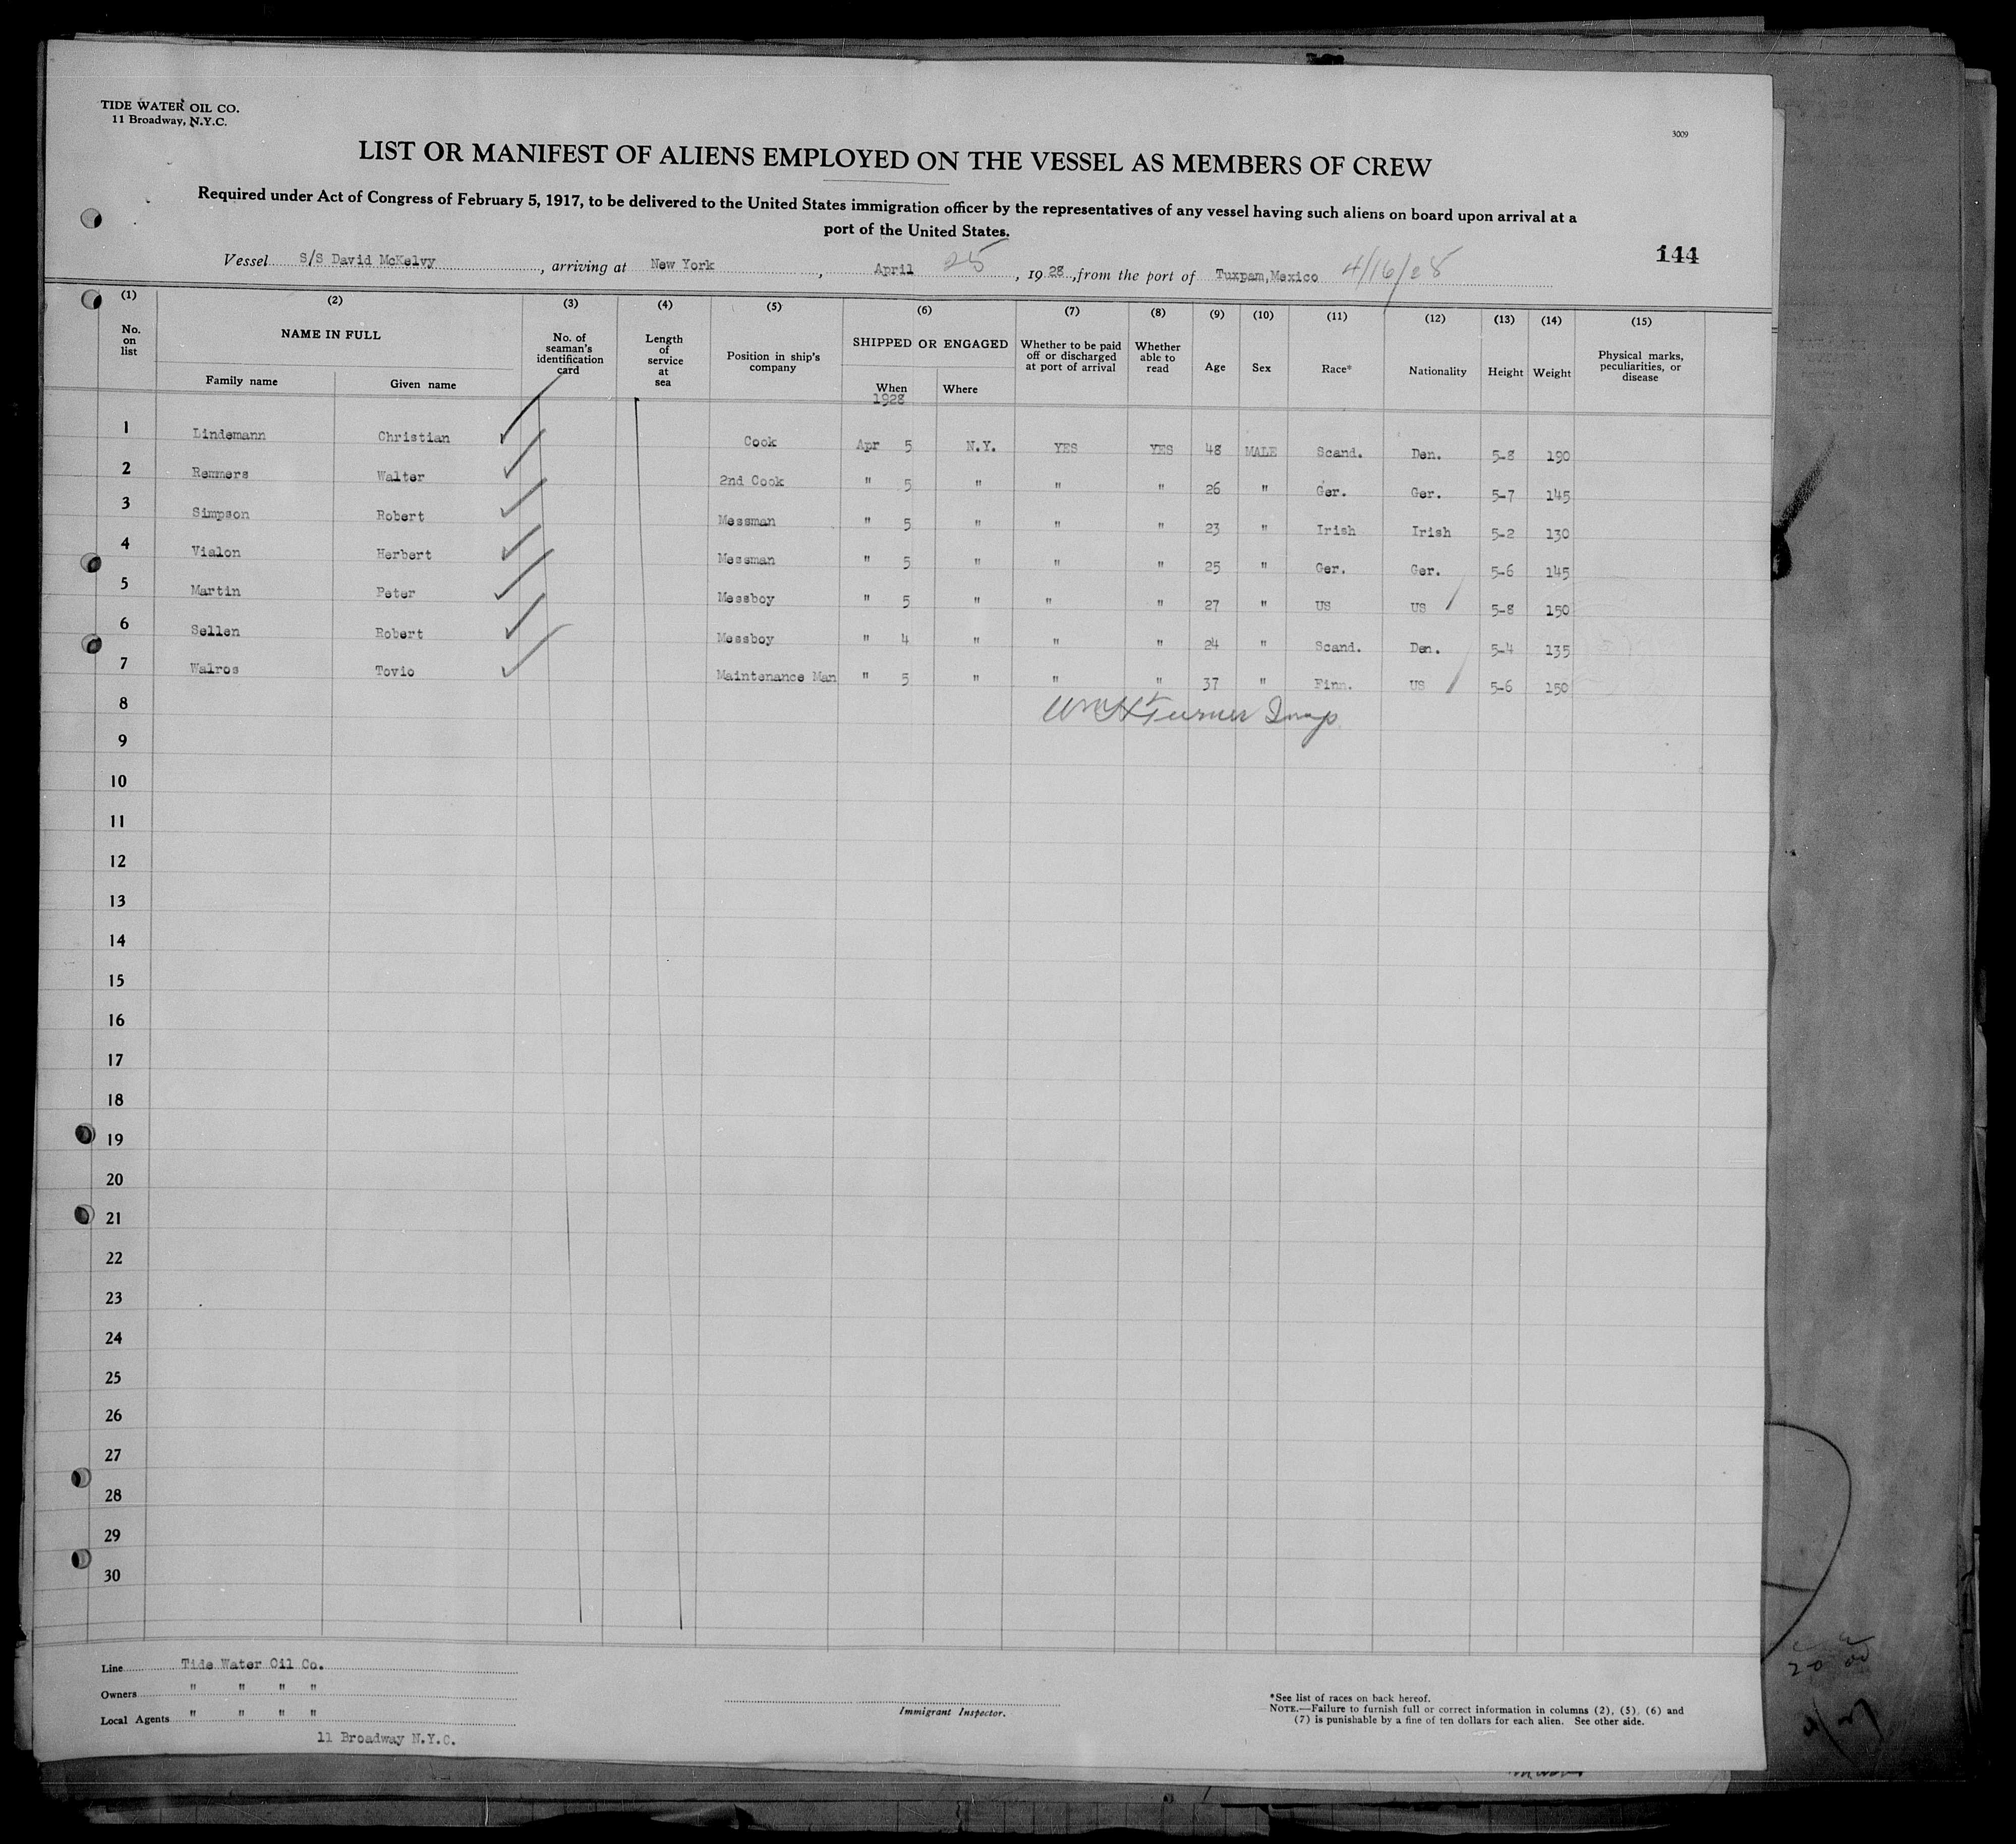 TIDE WATER OIL CO.
11 Broadway, N.Y.C.
3009
LIST OR MANIFEST OF ALIENS EMPLOYED ON THE VESSEL AS MEMBERS OF CREW
Required under Act of Congress of February 5, 1917, to be delivered to the United States immigration officer by the representatives of any vessel having such aliens on board upon arrival at a
port of the United States.
144
Vessel S/S David McKelvy, arriving at New York, April 25, 1928, from the port of Tuxpam,Mexico 4/16/28
(1) (2) (3) (4) (5) (6) (7) (8) (9) (10) (11) (12) (13) (14) (15)
No. on list NAME IN FULL Family name Given name No. of seaman's identification card Length of service at sea Position in ship's company SHIPPED OR ENGAGED When 1928 Where Whether to be paid off or discharged at port of arrival Whether able to read Age Sex Race* Nationality Height Weight Physical marks, peculiarities, or disease
1 Lindemann Christian Cook Apr 5 N.Y. YES YES 48 MALE Scand. Den. 5-8 190
2 Remmers Walter 2nd Cook " 5 " " " 26 " Ger. Ger. 5-7 145
3 Simpson Robert Messman " 5 " " " 23 " Irish Irish 5-2 130
4 Vialon Herbert Messman " 5 " " " 25 " Ger. Ger. 5-6 145
5 Martin Peter Messboy " 5 " " " 27 " US US 5-8 150
6 Sellen Robert Messboy " 4 " " " 24 " Scand. Den. 5-4 135
7 Walros Tovio Maintenance Man " 5 " " " 37 " Finn. US 5-6 150
8 Wm H Turner Insp
9
10
11
12
13
14
15
16
17
18
19
20
21
22
23
24
25
26
27
28
29
30
Line Tide Water Oil Co.
Owners " " " "
Local Agents " " " "
11 Broadway N.Y.C.
Immigrant Inspector.
*See list of races on back hereof.
NOTE.—Failure to furnish full or correct information in columns (2), (5), (6) and
(7) is punishable by a fine of ten dollars for each alien. See other side.